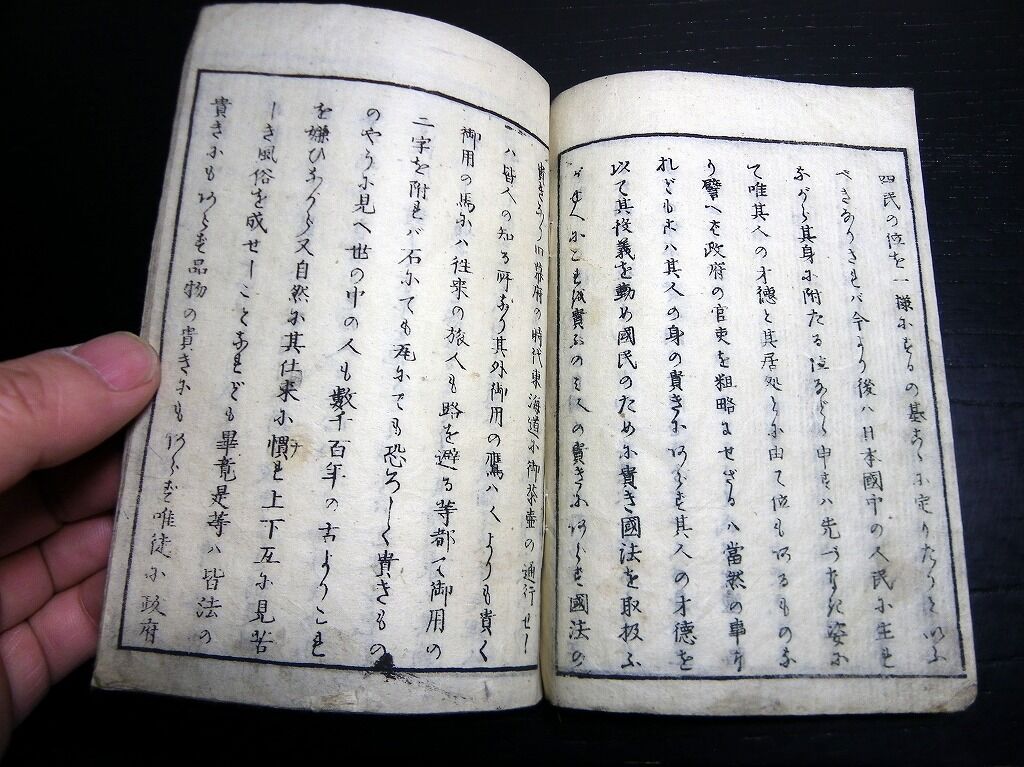 四民の位を一様にするの基こゝに定りたりといふ
べきなりされバ今より後ハ日本國中の人民に生れ
ながら其身に附たる位などゝ申すハ先づなき姿に
て唯其人の才徳と其居処とに由て位もあるものな
り譬へば政府の官吏を粗略にせざるハ當然の事な
れどもこハ其人の身の貴きにあらず其人の才徳を
以て其役義を勤め國民のために貴き國法を取扱ふ
がゆへにこれを貴ぶのミ人の貴きにあらず國法の
貴きなり旧幕府の時代東海道に御茶壷の通行せし
ハ皆人の知る所なり其外御用の鷹ハ人よりも貴く
御用の馬にハ往来の旅人も路を避る等都て御用の
二字を附れバ石にても瓦にても恐ろしく貴きもの
のやうに見へ世の中の人も數千百年の古よりこれ
を嫌ひながら又自然に其仕来に慣れ上下互に見苦
しき風俗を成せしことなれども畢竟是等ハ皆法の
貴きにもあらず品物の貴きにもあらず唯徒に政府